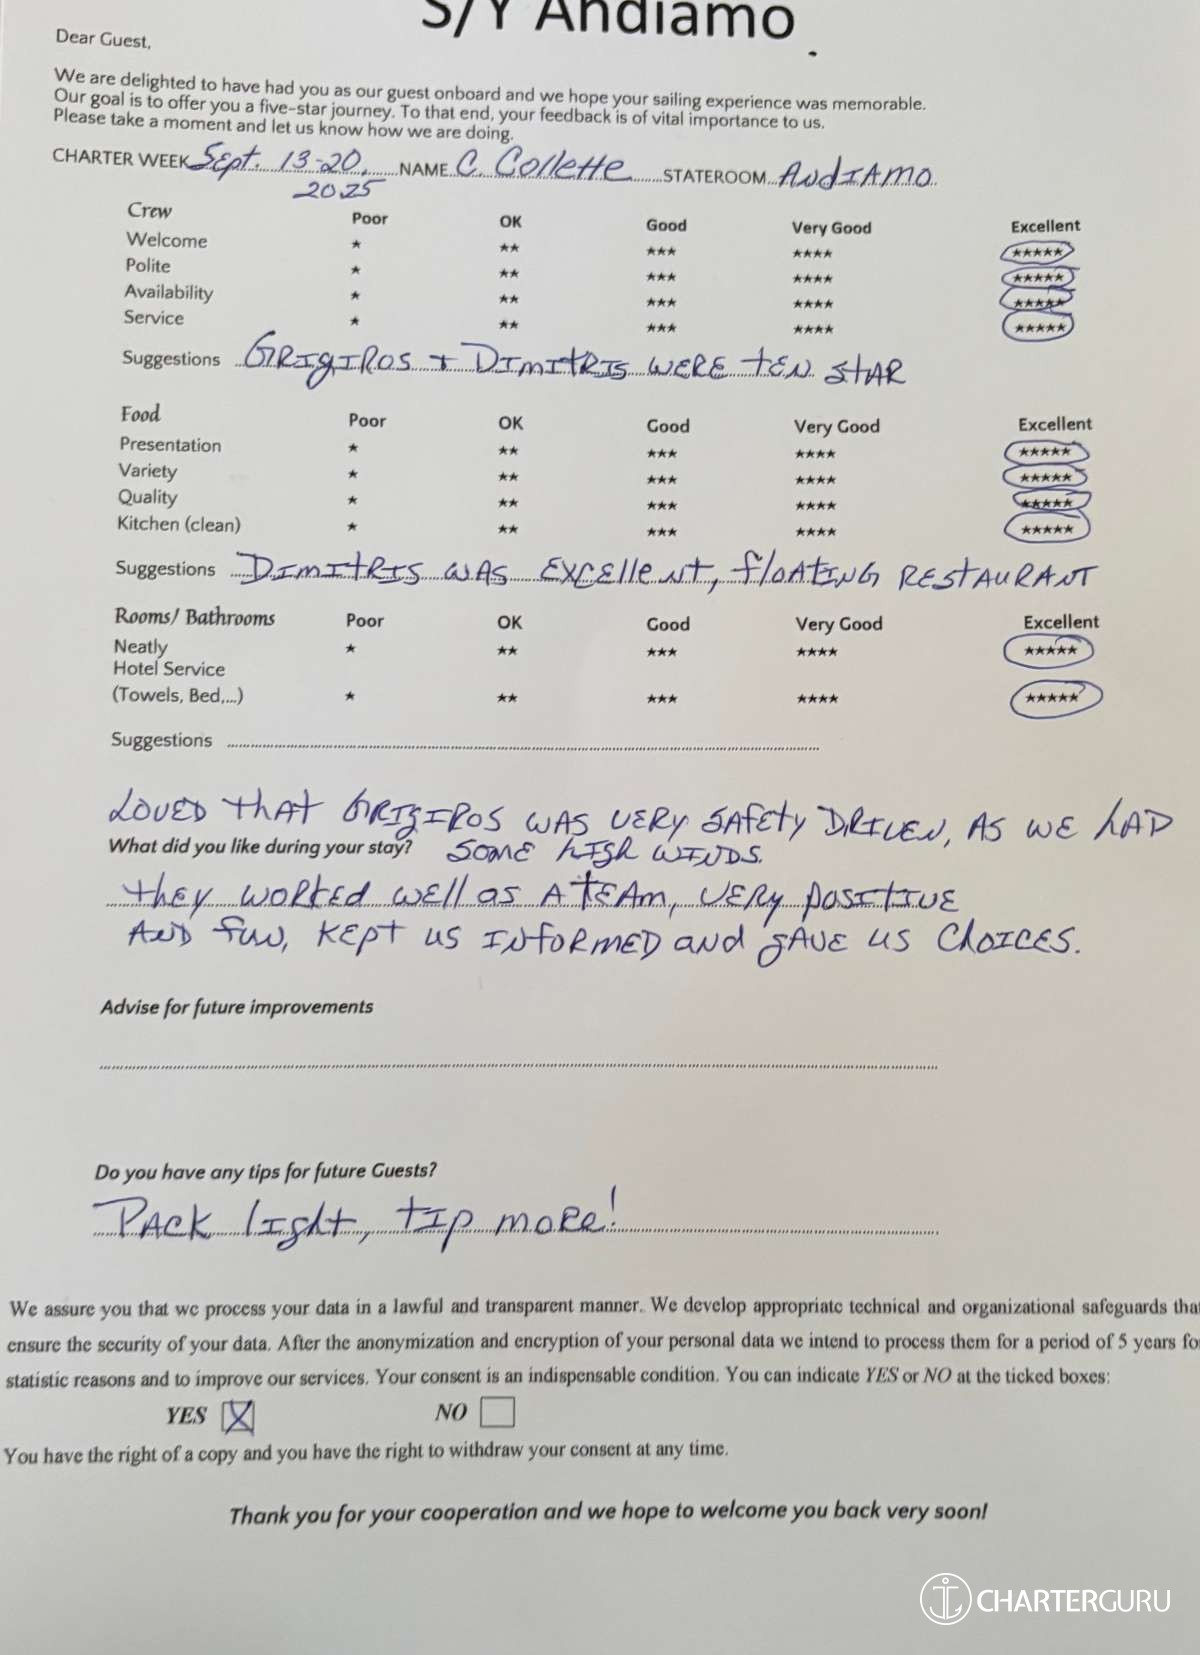 S/Y Andiamo
Dear Guest,
We are delighted to have had you as our guest onboard and we hope your sailing experience was memorable.
Our goal is to offer you a five-star journey. To that end, your feedback is of vital importance to us.
Please take a moment and let us know how we are doing.
CHARTER WEEK Sept. 13-20, NAME C. Collette STATEROOM ANDIAMO
2025
Crew Poor OK Good Very Good Excellent
Welcome ★ ★★ ★★★ ★★★★ ★★★★★
Polite ★ ★★ ★★★ ★★★★ ★★★★★
Availability ★ ★★ ★★★ ★★★★ ★★★★★
Service ★ ★★ ★★★ ★★★★ ★★★★★
Suggestions GRIGIROS + DIMITRIS WERE TEN STAR
Food Poor OK Good Very Good Excellent
Presentation ★ ★★ ★★★ ★★★★ ★★★★★
Variety ★ ★★ ★★★ ★★★★ ★★★★★
Quality ★ ★★ ★★★ ★★★★ ★★★★★
Kitchen (clean) ★ ★★ ★★★ ★★★★ ★★★★★
Suggestions DIMITRIS WAS EXCEllENT, floATING RESTAURANT
Rooms/ Bathrooms Poor OK Good Very Good Excellent
Neatly ★ ★★ ★★★ ★★★★ ★★★★★
Hotel Service
(Towels, Bed,...) ★ ★★ ★★★ ★★★★ ★★★★★
Suggestions
LOVED thAT GRIGIROS WAS VERY SAfETY DRIVEN, AS WE hAD
What did you like during your stay? SOME hIGh WINDS.
thEy WORKED WEll as A TEAM, VERY POSITIVE
AND fUN, KEPT US INfORMED and gAVE US ChOICES.
Advise for future improvements
Do you have any tips for future Guests?
PACK light, tIP MORE!
We assure you that we process your data in a lawful and transparent manner. We develop appropriate technical and organizational safeguards that
ensure the security of your data. After the anonymization and encryption of your personal data we intend to process them for a period of 5 years for
statistic reasons and to improve our services. Your consent is an indispensable condition. You can indicate YES or NO at the ticked boxes:
YES X NO
You have the right of a copy and you have the right to withdraw your consent at any time.
Thank you for your cooperation and we hope to welcome you back very soon!
CHARTERGURU